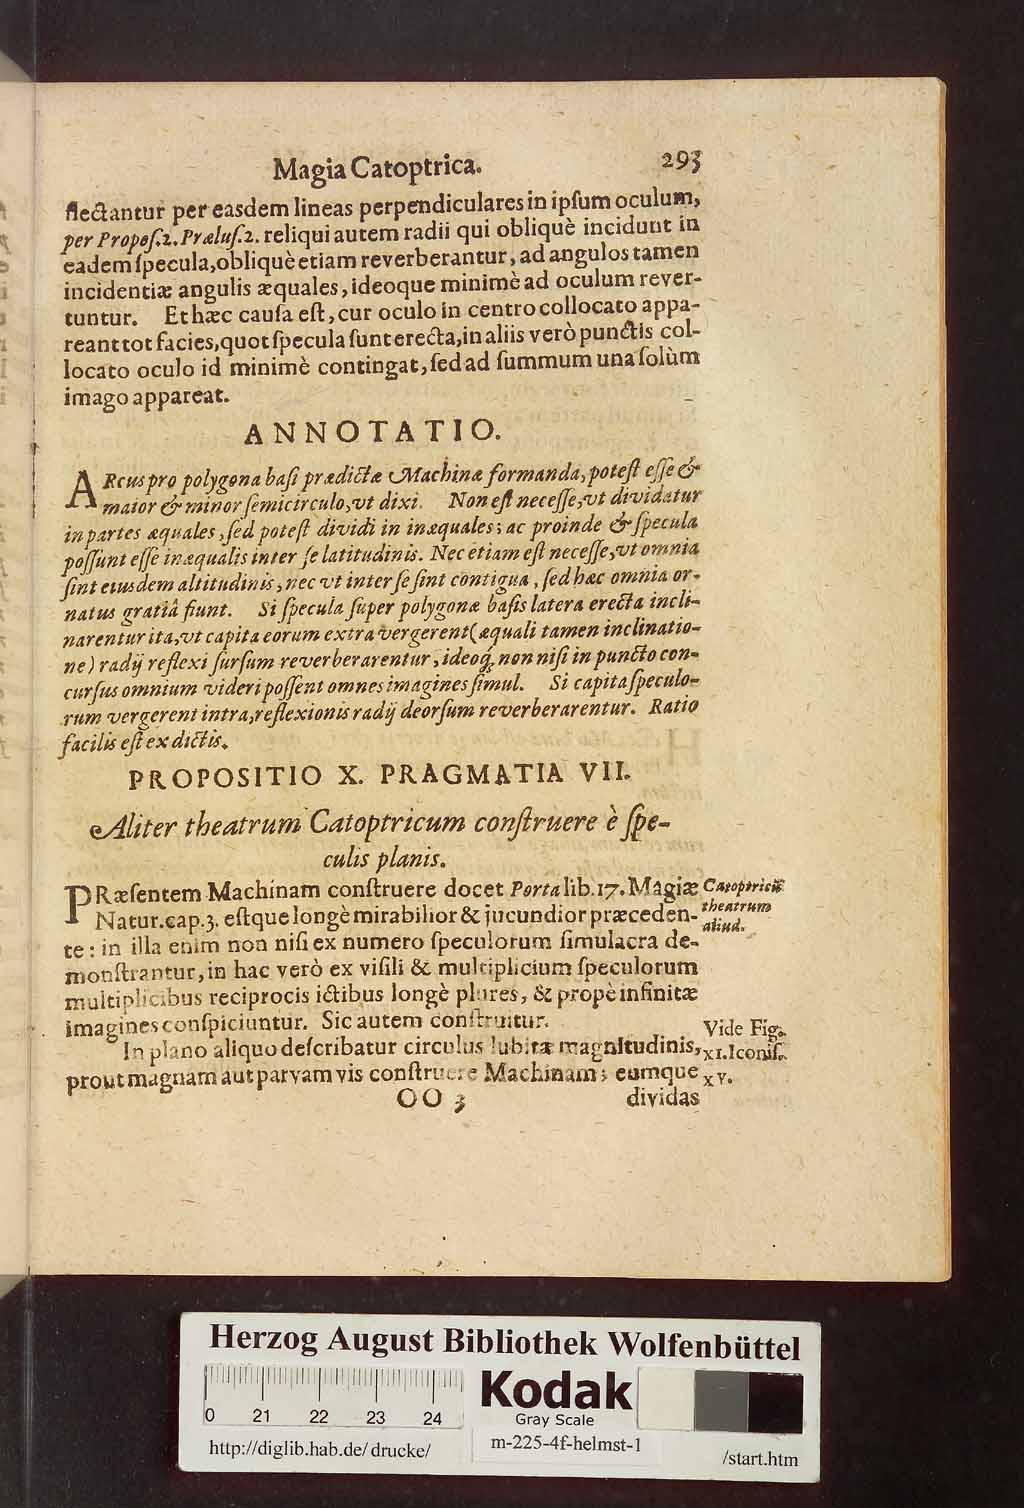 Magia Catoptrica. 293
flectantur per easdem lineas perpendiculares in ipſum oculum,
per Propoſ.2. Præluſ.2. reliqui autem radii qui obliquè incidunt in
eadem ſpecula, obliquè etiam reverberantur, ad angulos tamen
incidentiæ angulis æquales, ideoque minimè ad oculum rever-
tuntur. Et hæc cauſa eſt, cur oculo in centro collocato appa-
reant tot facies, quot ſpecula ſunt erecta, in aliis verò punctis col-
locato oculo id minimè contingat, ſed ad ſummum una ſolùm
imago appareat.
ANNOTATIO.
ARcus pro polygona baſi prædictæ Machinæ formanda, poteſt eſſe &
maior & minor ſemicirculo, vt dixi. Non eſt neceſſe, vt dividatur
in partes æquales, ſed poteſt dividi in inæquales; ac proinde & ſpecula
poſſunt eſſe inæqualis inter ſe latitudinis. Nec etiam eſt neceſſe, vt omnia
ſint eiusdem altitudinis, nec vt inter ſe ſint contigua, ſed hæc omnia or-
natus gratiâ fiunt. Si ſpecula ſuper polygonæ baſis latera erecta incli-
narentur ita, vt capita eorum extra vergerent (æquali tamen inclinatio-
ne) radij reflexi ſurſum reverberarentur, ideoq́; non niſi in puncto con-
curſus omnium videri poſſent omnes imagines ſimul. Si capita ſpeculo-
rum vergerent intra, reflexionis radij deorſum reverberarentur. Ratio
facilis eſt ex dictis.
PROPOSITIO X. PRAGMATIA VII.
Aliter theatrum Catoptricum conſtruere è ſpe-
culis planis.
PRæſentem Machinam conſtruere docet Porta lib. 17. Magiæ
Natur. cap. 3. eſtque longè mirabilior & jucundior præceden-
te: in illa enim non niſi ex numero ſpeculorum ſimulacra de-
monſtrantur, in hac verò ex viſili & multiplicium ſpeculorum
multiplicibus reciprocis ictibus longè plures, & propè infinitæ
imagines conſpiciuntur. Sic autem conſtruitur.
Catoptricũ
theatrum
aliud.
In plano aliquo deſcribatur circulus lubitæ magnitudinis,
prout magnam aut parvam vis conſtruere Machinam; eumque
Vide Fig.
XI. Iconiſ.
XV.
OO 3 dividas
Herzog August Bibliothek Wolfenbüttel
0 21 22 23 24
Kodak
Gray Scale
http://diglib.hab.de/drucke/
m-225-4f-helmst-1
/start.htm